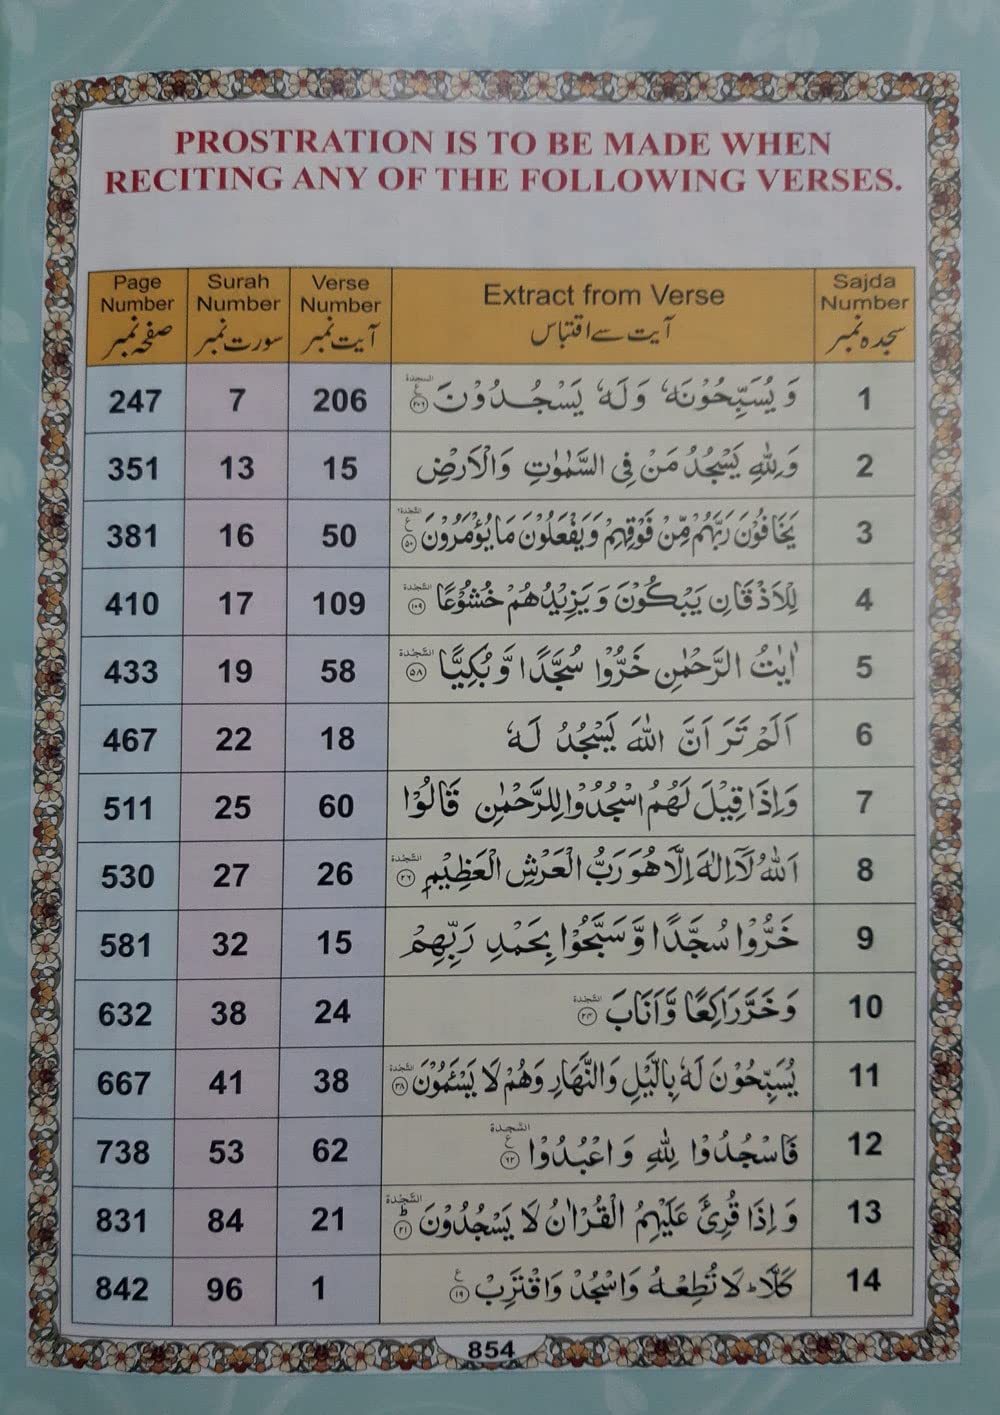 PROSTRATION IS TO BE MADE WHEN
RECITING ANY OF THE FOLLOWING VERSES.
Page Number صفحہ نمبر | Surah Number سورت نمبر | Verse Number آیت نمبر | Extract from Verse آیت سے اقتباس | Sajda Number سجدہ نمبر
247 | 7 | 206 | وَ يُسَبِّحُوْنَهٗ وَ لَهٗ يَسْجُدُوْنَ السجدة ع ۲۰۶ | 1
351 | 13 | 15 | وَ لِلّٰهِ يَسْجُدُ مَنْ فِى السَّمٰوٰتِ وَالْاَرْضِ | 2
381 | 16 | 50 | يَخَافُوْنَ رَبَّهُمْ مِّنْ فَوْقِهِمْ وَيَفْعَلُوْنَ مَا يُؤْمَرُوْنَ السَّجْدَة ع ۵۰ | 3
410 | 17 | 109 | لِلْاَذْقَانِ يَبْكُوْنَ وَ يَزِيْدُهُمْ خُشُوْعًا السَّجْدَة ۱۰۹ | 4
433 | 19 | 58 | اٰيٰتُ الرَّحْمٰنِ خَرُّوْا سُجَّدًا وَّ بُكِيًّا السَّجْدَة ۵۸ | 5
467 | 22 | 18 | اَلَمْ تَرَ اَنَّ اللّٰهَ يَسْجُدُ لَهٗ | 6
511 | 25 | 60 | وَ اِذَا قِيْلَ لَهُمُ اسْجُدُوْا لِلرَّحْمٰنِ قَالُوْا | 7
530 | 27 | 26 | اَللّٰهُ لَاۤ اِلٰهَ اِلَّا هُوَ رَبُّ الْعَرْشِ الْعَظِيْمِ السَّجْدَة ۲۶ | 8
581 | 32 | 15 | خَرُّوْا سُجَّدًا وَّ سَبَّحُوْا بِحَمْدِ رَبِّهِمْ | 9
632 | 38 | 24 | وَ خَرَّ رَاكِعًا وَّ اَنَابَ السَّجْدَة ۲۴ | 10
667 | 41 | 38 | يُسَبِّحُوْنَ لَهٗ بِالَّيْلِ وَالنَّهَارِ وَهُمْ لَا يَسْـَٔمُوْنَ السَّجْدَة ۳۸ | 11
738 | 53 | 62 | فَاسْجُدُوْا لِلّٰهِ وَ اعْبُدُوْا السَّجْدَة ع ۶۲ | 12
831 | 84 | 21 | وَ اِذَا قُرِئَ عَلَيْهِمُ الْقُرْاٰنُ لَا يَسْجُدُوْنَ السَّجْدَة ط ۲۱ | 13
842 | 96 | 1 | كَلَّا ؕ لَا تُطِعْهُ وَاسْجُدْ وَاقْتَرِبْ ع ۱۹ | 14
854